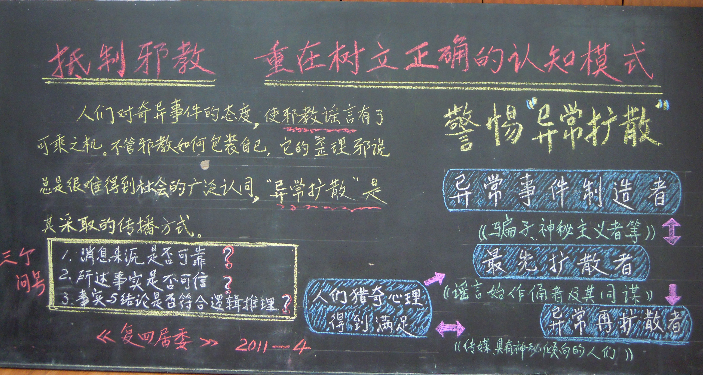 抵制邪教 重在树立正确的认知模式
人们对奇异事件的态度，使邪教谣言有了
可乘之机。不管邪教如何包装自己，它的歪理邪说
总是很难得到社会的广泛认同，"异常扩散"是
其采取的传播方式。
三个
问号
1. 消息来源是否可靠？
2. 所述事实是否可信？
3. 事实与结论是否符合逻辑推理？
《复四居委》 2011—4
警惕"异常扩散"
异常事件制造者
《骗子、神秘主义者等》
最先扩散者
《谣言始作俑者及其同谋》
异常再扩散者
《传媒、具有神秘倾向的人们》
人们猎奇心理
得到满足